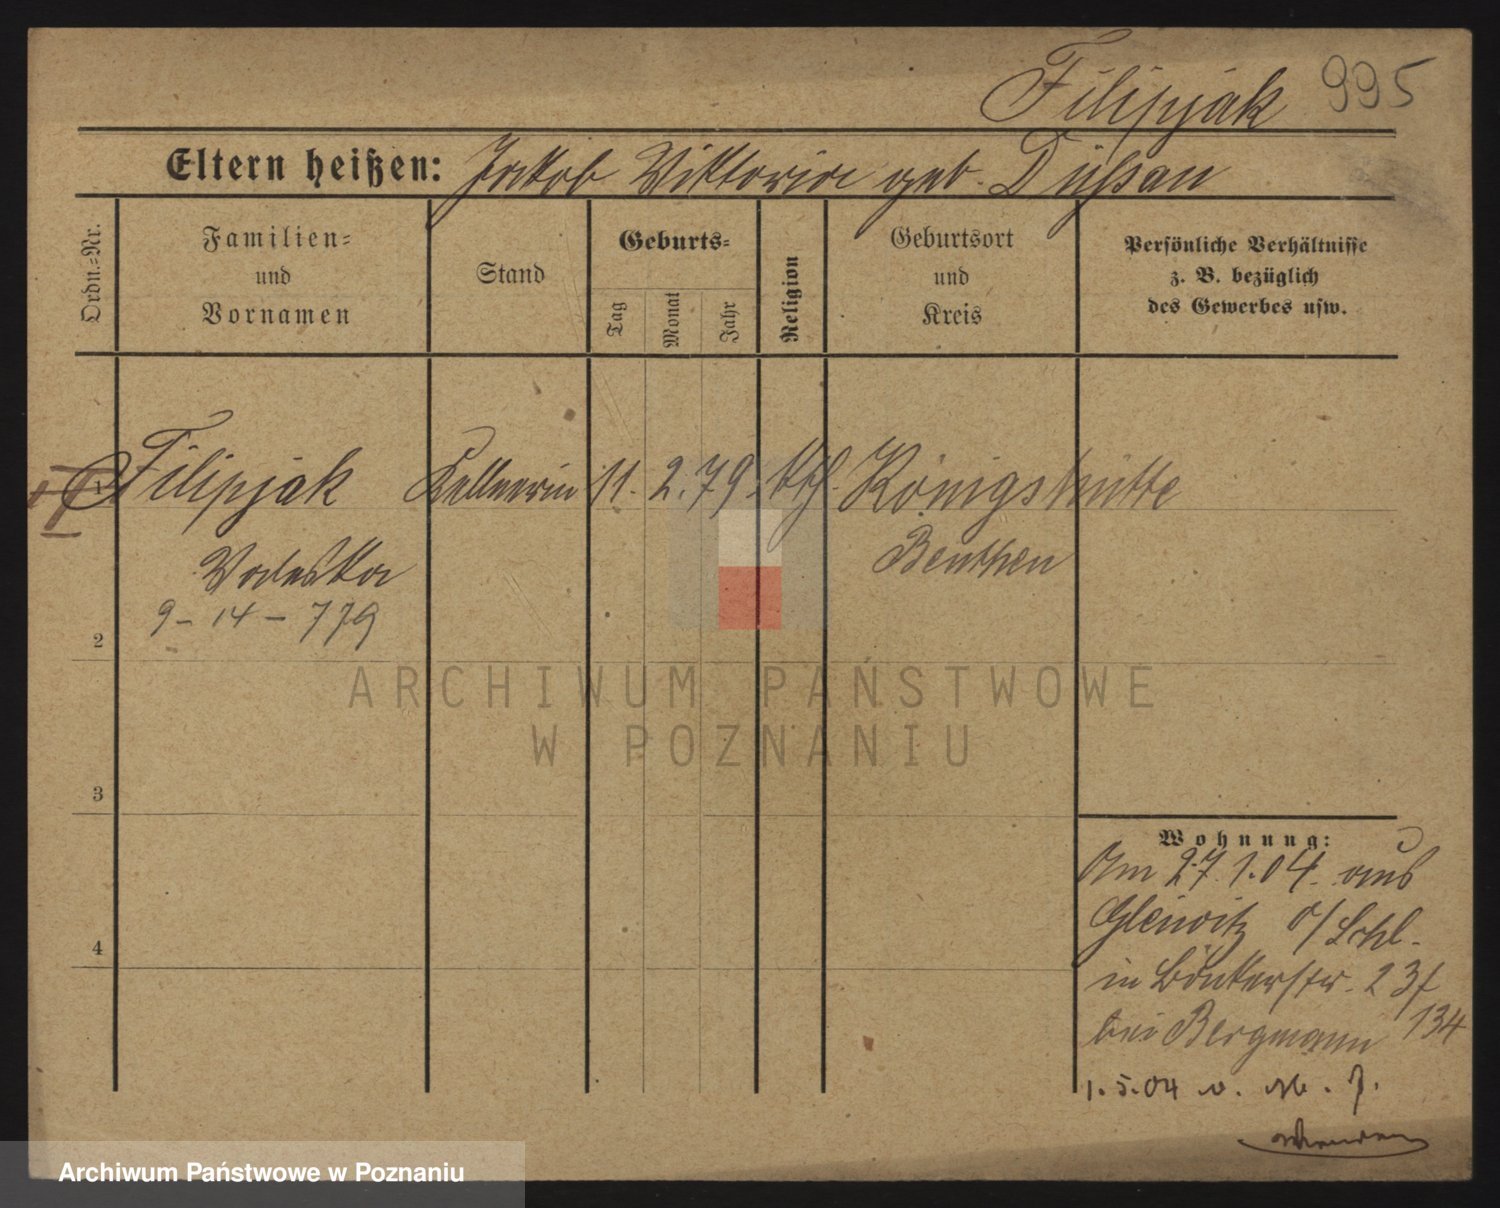 Filipjak 995
Eltern heißen: Jakob Viktoria geb.
Ordn.-Nr.
Familien-
und
Vornamen
Stand
Geburts-
Tag
Monat
Jahr
Religion
Geburtsort
und
Kreis
Persönliche Verhältnisse
z. B. bezüglich
des Gewerbes usw.
Filipjak Kellnerin 11. 2. 79. kth. Königshütte
Valeska Beuthen
9 - 14 - 779
2
3
4
Wohnung:
Am 27.1.04. aus
Gleiwitz O/Schl.
in 23/
bei Bergmann 134
1.5.04
ARCHIWUM PAŃSTWOWE
W POZNANIU
Archiwum Państwowe w Poznaniu